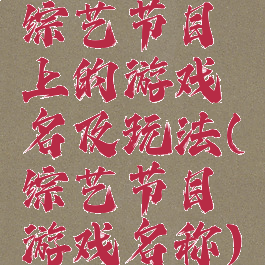 综艺节目
上的游戏
名及玩法(
综艺节目
游戏名称)